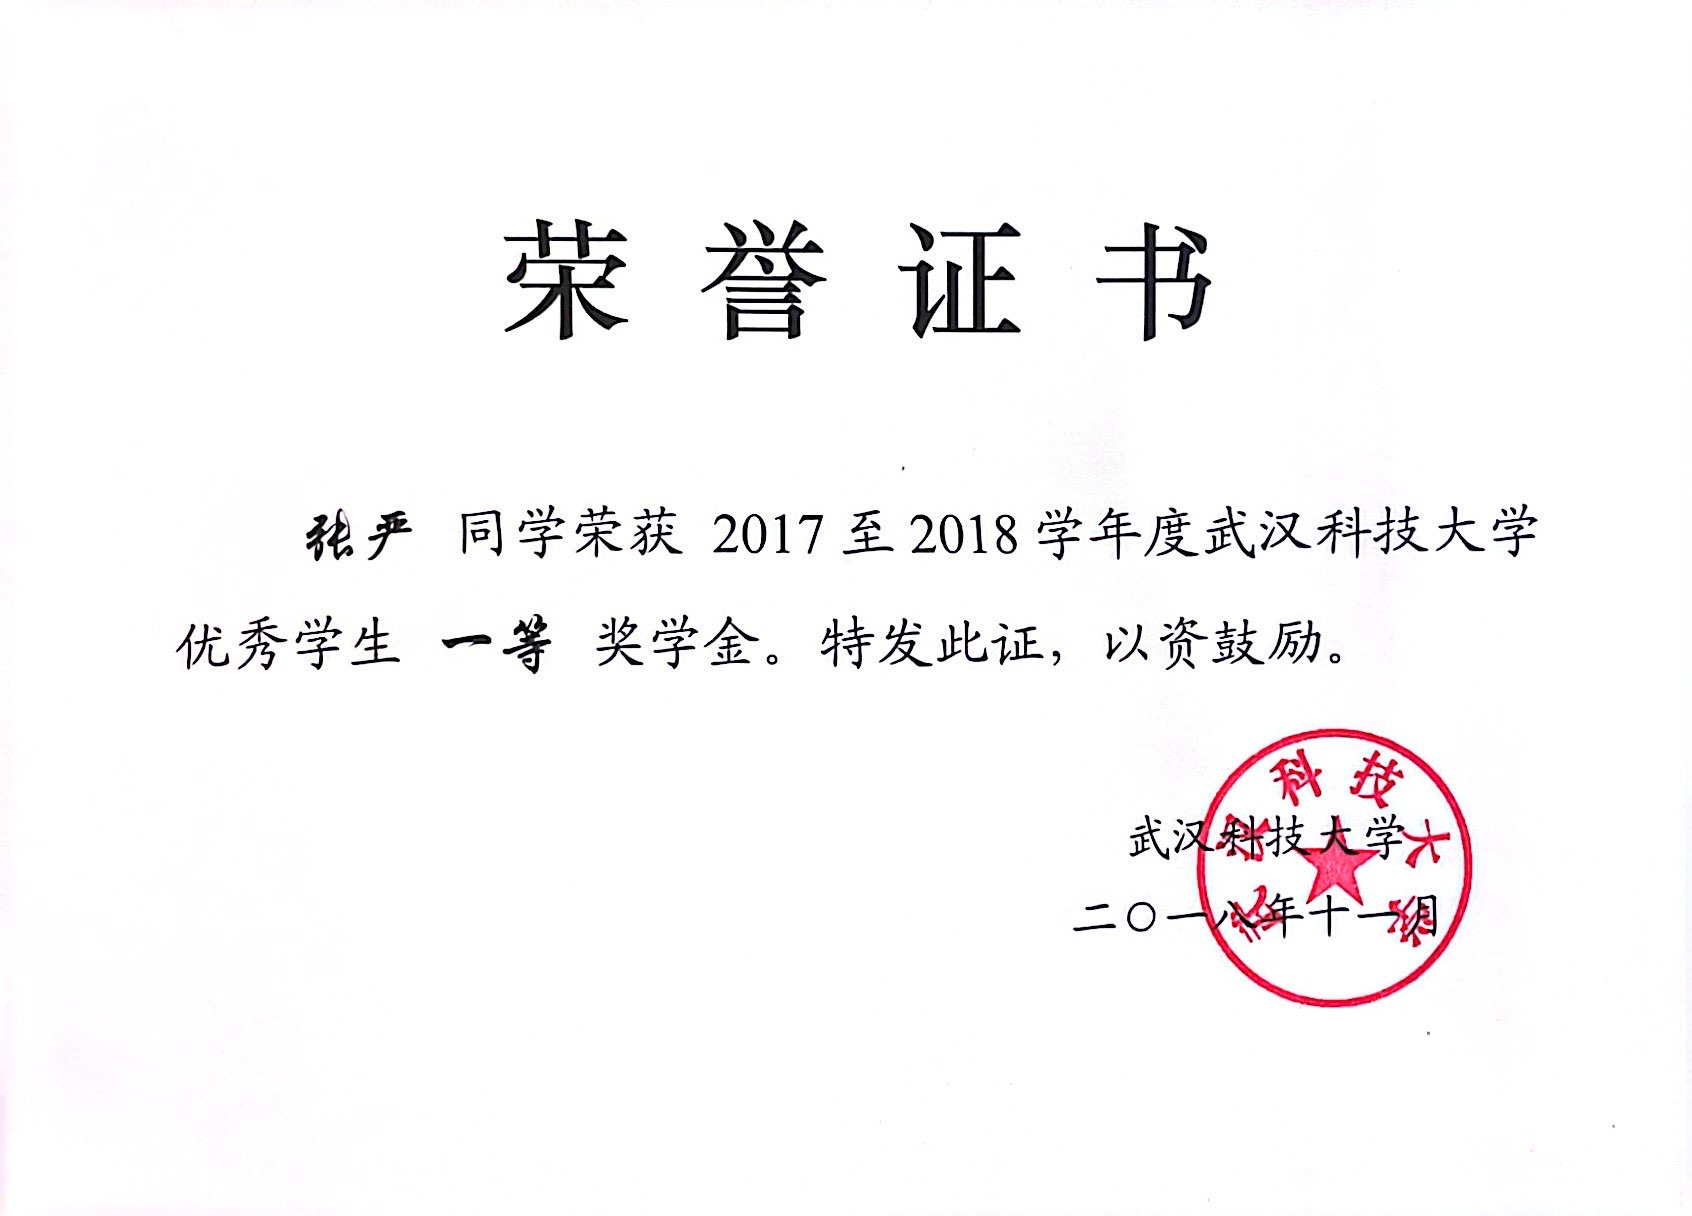 荣誉证书
张严 同学荣获 2017 至 2018 学年度武汉科技大学
优秀学生 一等 奖学金。特发此证，以资鼓励。
科技大
武汉科技大学
二〇一八年十一月